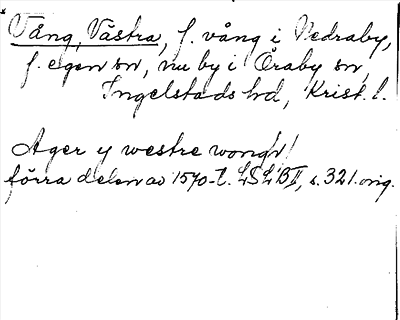 Vång, Västra, f. vång i Nedraby,
f. egen sn, nu by i Öraby sn,
Ingelstads hd, Krist. l.
Ager y westre wong!
förra delen av 1570-t. LSLB II, s. 321. orig.